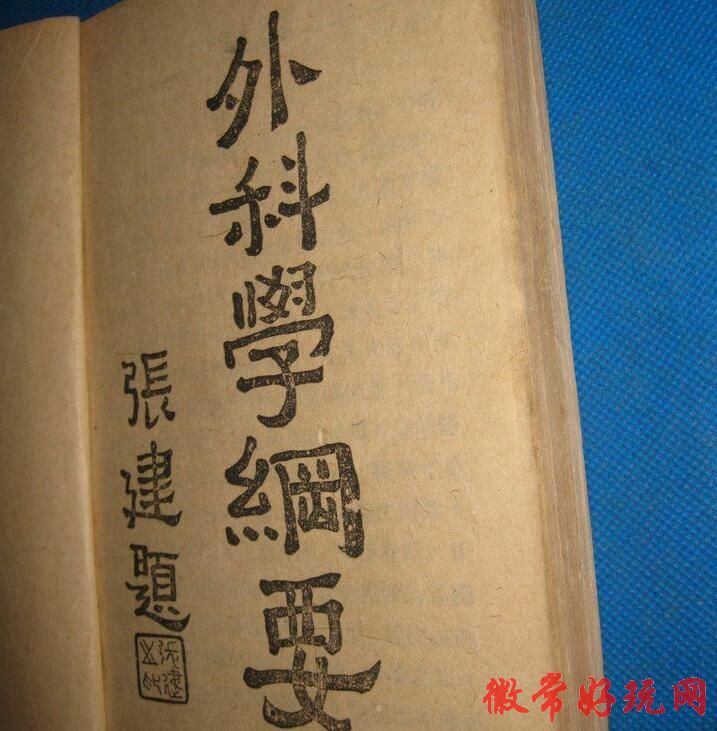 外科學綱要
張建題
徽常好玩网